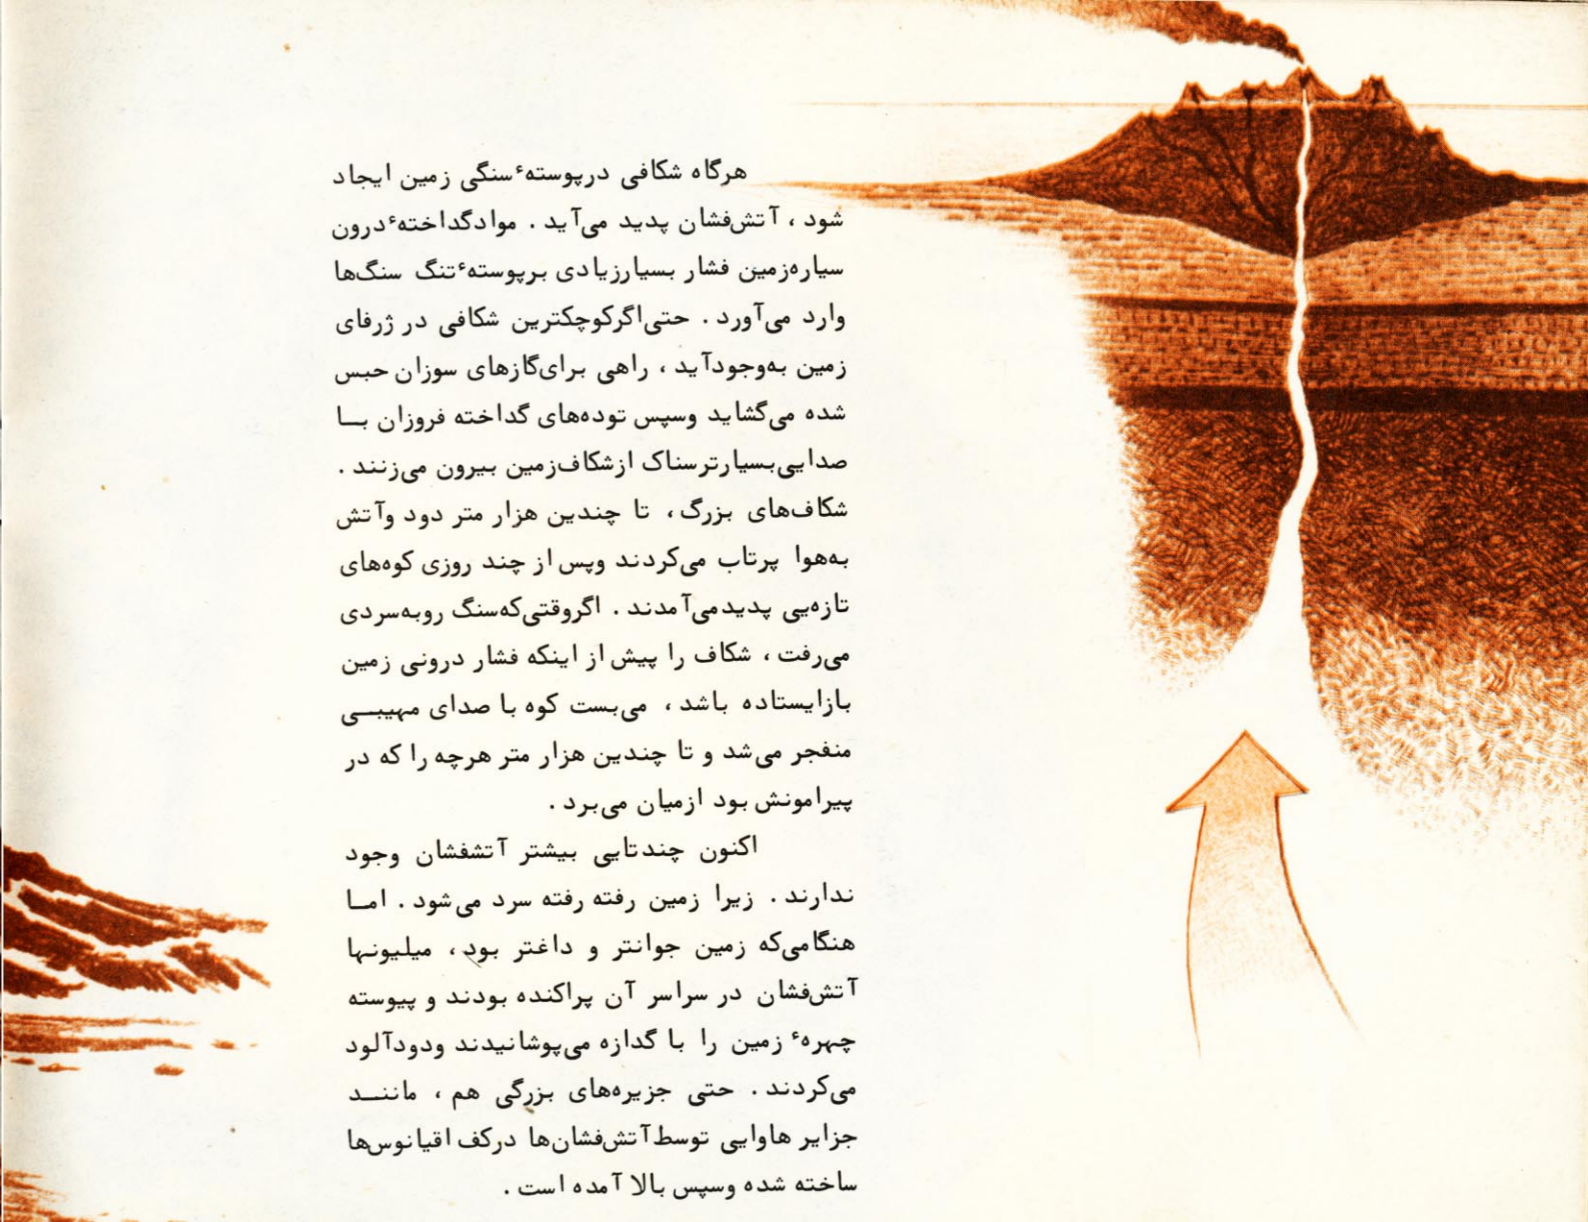 هرگاه شکافی درپوستهٔ سنگی زمین ایجاد
شود ، آتش‌فشان پدید می‌آید . موادگداختهٔ درون
سیاره‌زمین فشار بسیارزیادی برپوستهٔ تنگ سنگ‌ها
وارد می‌آورد . حتی‌اگرکوچکترین شکافی در ژرفای
زمین به‌وجودآید ، راهی برای‌گازهای سوزان حبس
شده می‌گشاید وسپس توده‌های گداخته فروزان بــا
صدایی‌بسیارترسناک ازشکاف‌زمین بیرون می‌زنند .
شکاف‌های بزرگ ، تا چندین هزار متر دود وآتش
به‌هوا پرتاب می‌کردند وپس از چند روزی کوه‌های
تازه‌یی پدیدمی‌آمدند . اگروقتی‌که‌سنگ روبه‌سردی
می‌رفت ، شکاف را پیش از اینکه فشار درونی زمین
بازایستاده باشد ، می‌بست کوه با صدای مهیبــی
منفجر می‌شد و تا چندین هزار متر هرچه را که در
پیرامونش بود ازمیان می‌برد .
اکنون چندتایی بیشتر آتشفشان وجود
ندارند . زیرا زمین رفته رفته سرد می‌شود . امــا
هنگامی‌که زمین جوانتر و داغتر بود ، میلیونها
آتش‌فشان در سراسر آن پراکنده بودند و پیوسته
چهرهٔ زمین را با گدازه می‌پوشانیدند ودودآلود
می‌کردند . حتی جزیره‌های بزرگی هم ، ماننــد
جزایر هاوایی توسط‌آتش‌فشان‌ها درکف اقیانوس‌ها
ساخته شده وسپس بالا آمده است .